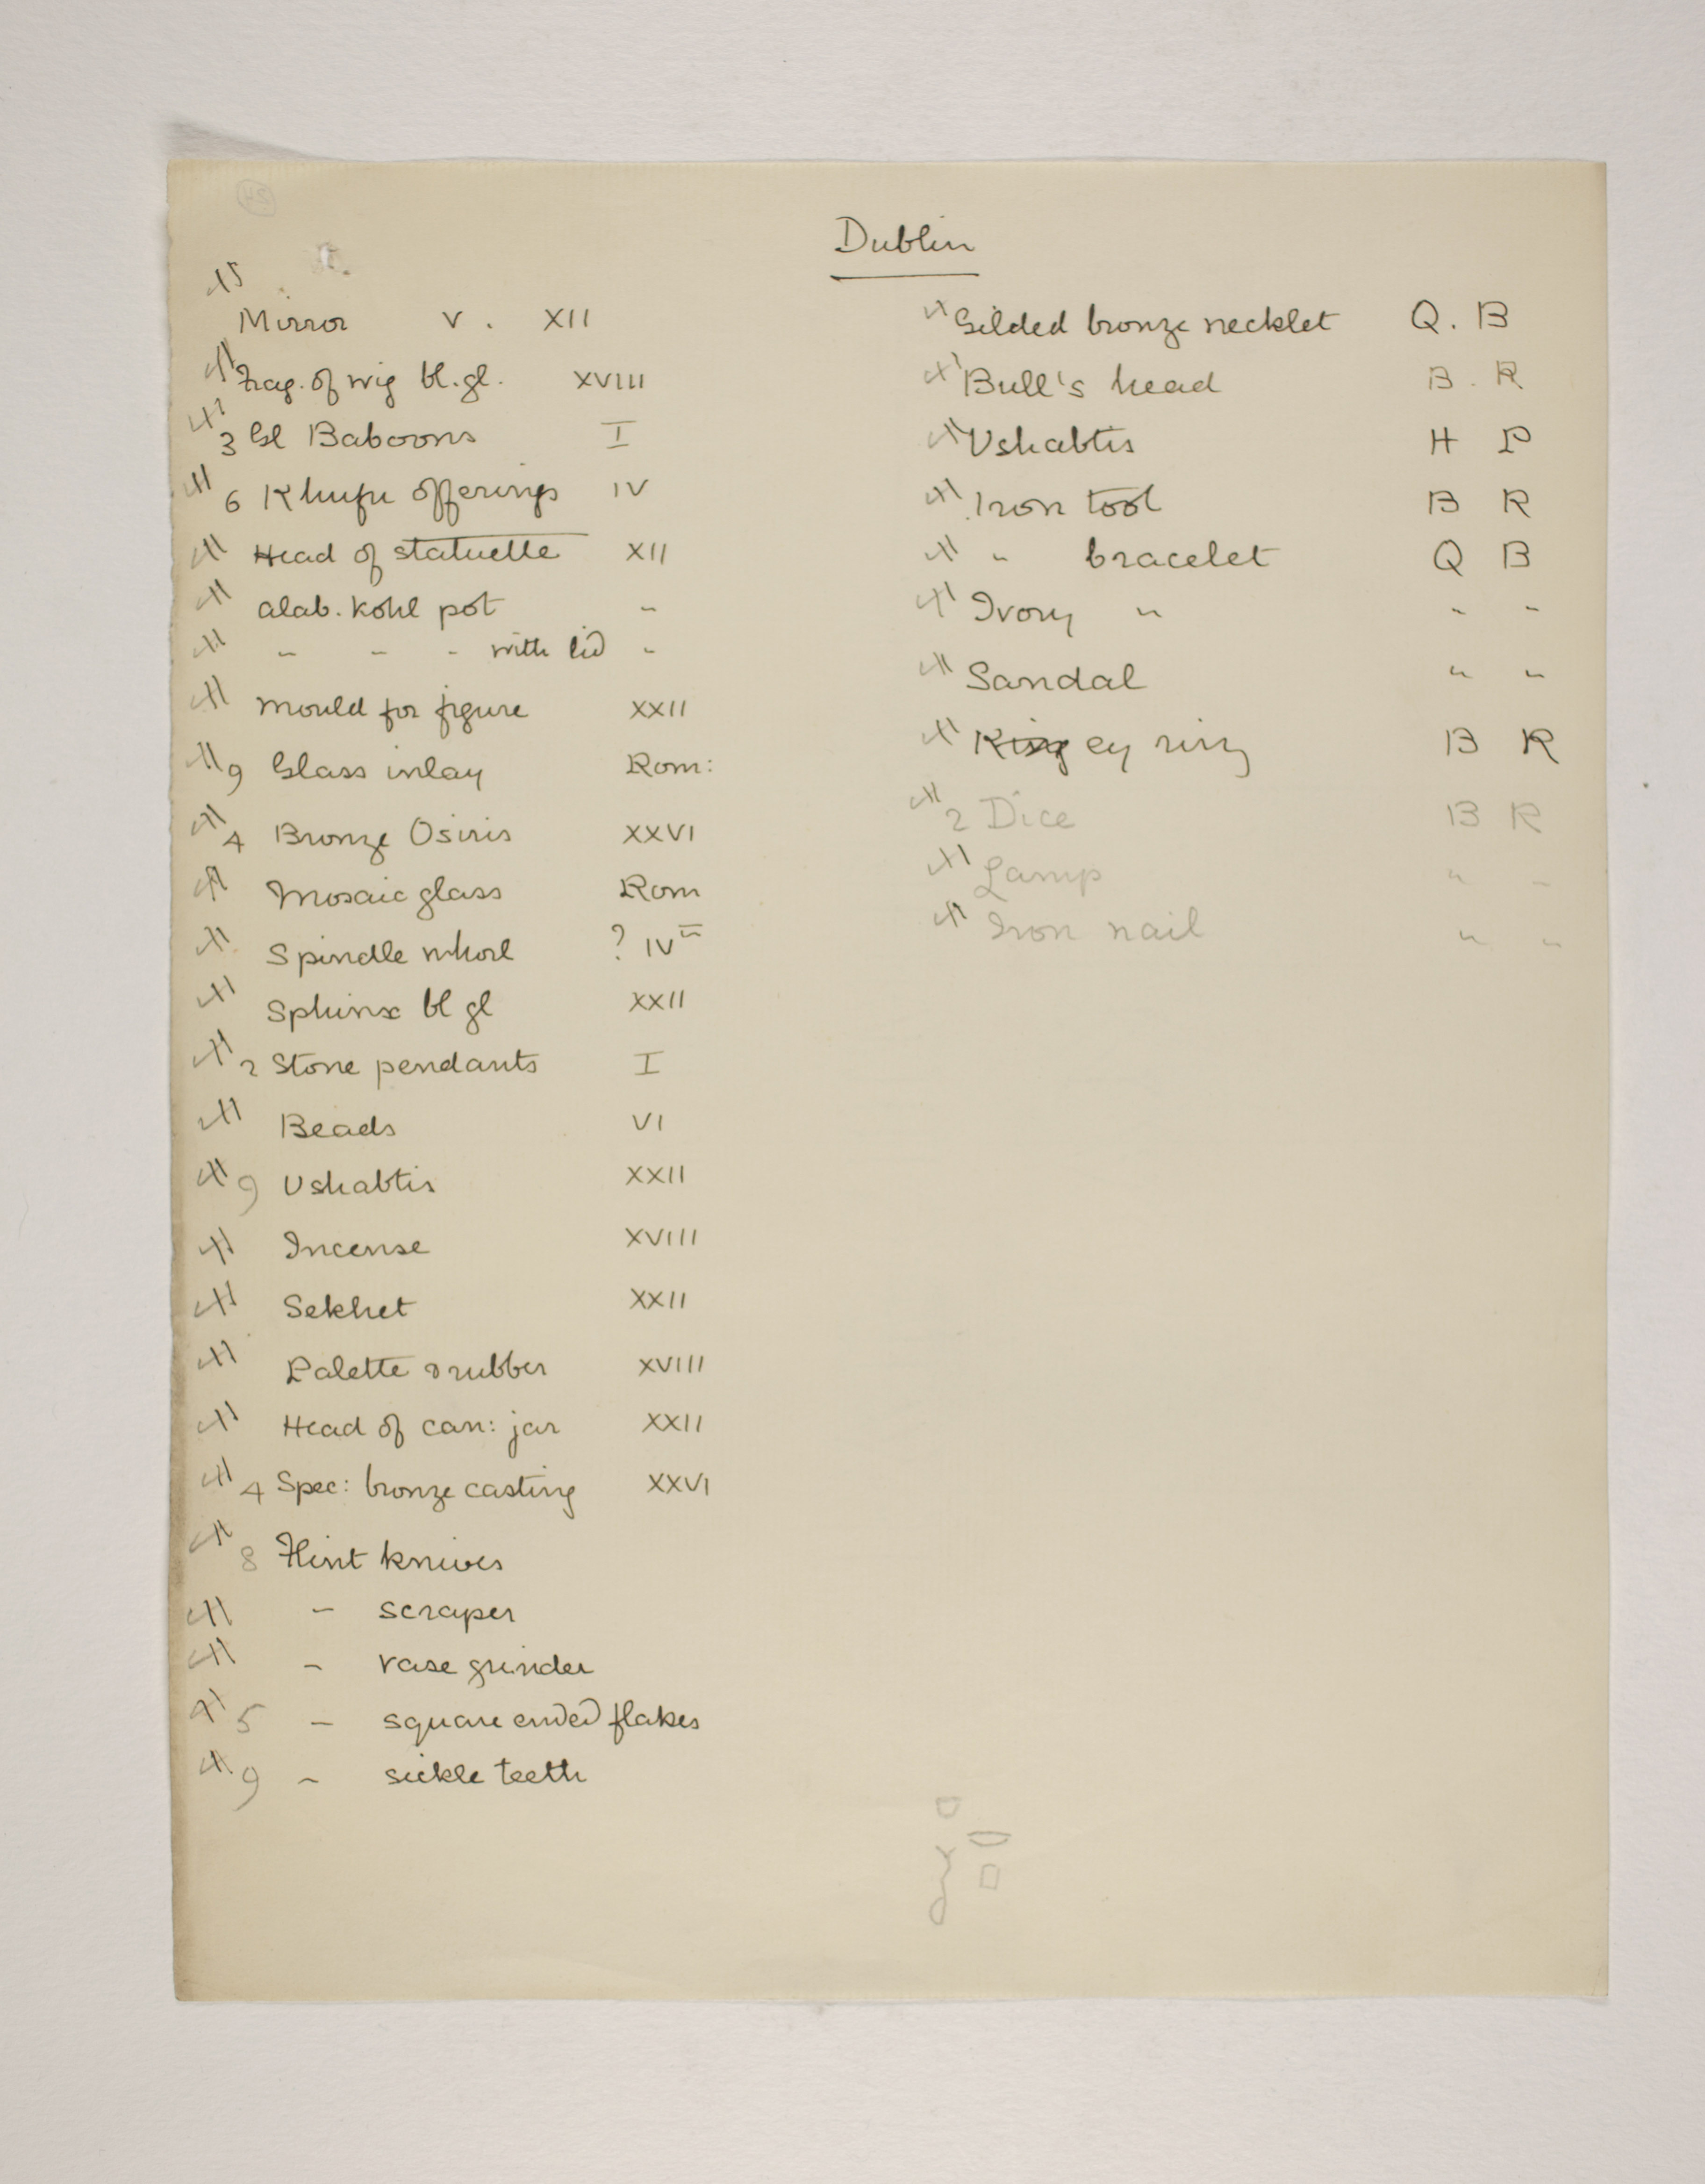 Dublin
Mirror V . XII
Frag. of wig bl. gl. XVIII
3 Gl Baboons I
6 Khufu offerings IV
Head of statuette XII
alab. kohl pot "
" " " with lid "
Mould for figure XXII
9 Glass inlay Rom:
4 Bronze Osiris XXVI
Mosaic glass Rom
Spindle whorl ? IV
Sphinx bl gl XXII
2 Stone pendants I
Beads VI
9 Ushabtis XXII
Incense XVIII
Sekhet XXII
Palette & rubber XVIII
Head of can: jar XXII
4 Spec: bronze casting XXVI
8 Flint knives
" scraper
" vase grinder
5 " square ended flakes
9 " sickle teeth
Gilded bronze necklet Q. B
Bull's head B. R
Ushabtis H P
Iron tool B R
" bracelet Q B
Ivory " " "
Sandal " "
Key ring B R
2 Dice B R
Lamp " "
Iron nail " "